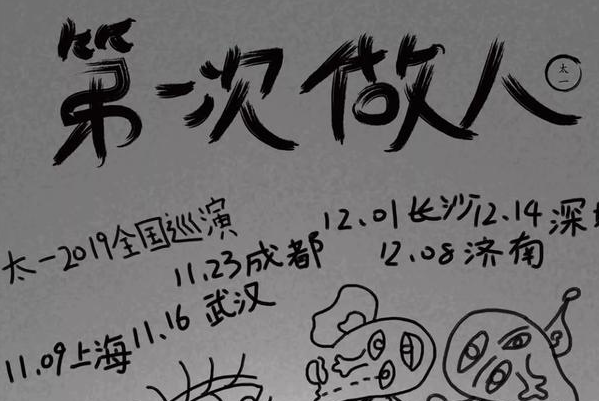 第一次做人
太一
太一2019全国巡演
12.01长沙
12.14深
11.23成都
12.08济南
11.16 武汉
11.09上海